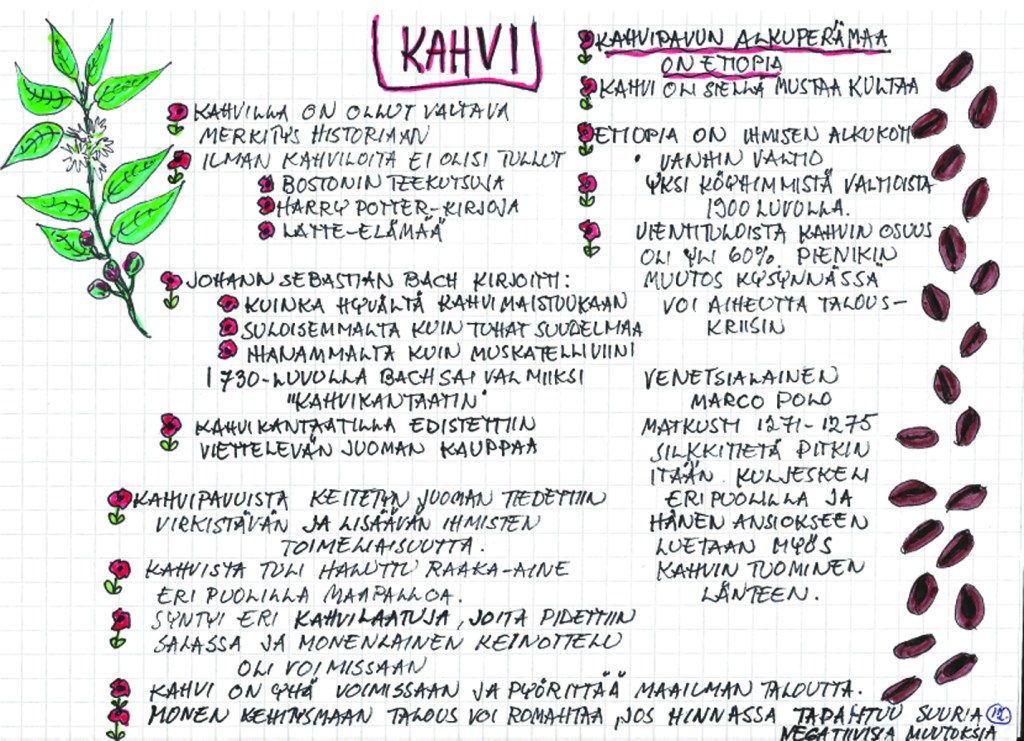 KAHVI
KAHVILLA ON OLLUT VALTAVA
MERKITYS HISTORIAAN
ILMAN KAHVILOITA EI OLISI TULLUT
BOSTONIN TEEKUTSUJA
HARRY POTTER-KIRJOJA
LATTE-ELÄMÄÄ
JOHANN SEBASTIAN BACH KIRJOITTI:
KUINKA HYVÄLTÄ KAHVI MAISTUUKAAN
SULOISEMMALTA KUIN TUHAT SUUDELMAA
IHANAMMALTA KUIN MUSKATELLIVIINI
1730-LUVULLA BACH SAI VALMIIKSI
"KAHVIKANTAATIN"
KAHVIKANTAATILLA EDISTETTIIN
VIETTELEVÄN JUOMAN KAUPPAA
KAHVIPAVUISTA KEITETYN JUOMAN TIEDETTIIN
VIRKISTÄVÄN JA LISÄÄVÄN IHMISTEN
TOIMELIAISUUTTA.
KAHVISTA TULI HALUTTU RAAKA-AINE
ERI PUOLILLA MAAPALLOA.
SYNTYI ERI KAHVILAATUJA, JOITA PIDETTIIN
SALASSA JA MONENLAINEN KEINOTTELU
OLI VOIMISSAAN
KAHVI ON YHÄ VOIMISSAAN JA PYÖRITTÄÄ MAAILMAN TALOUTTA.
MONEN KEHITYSMAAN TALOUS VOI ROMAHTAA, JOS HINNASSA TAPAHTUU SUURIA
NEGATIIVISIA MUUTOKSIA
KAHVIPAVUN ALKUPERÄMAA
ON ETIOPIA
KAHVI OLI SIELLÄ MUSTAA KULTAA
ETIOPIA ON IHMISEN ALKUKOTI
• VANHIN VALTIO
YKSI KÖYHIMMISTÄ VALTIOISTA
1900 LUVULLA.
VIENTITULOISTA KAHVIN OSUUS
OLI YLI 60%. PIENIKIN
MUUTOS KYSYNNÄSSÄ
VOI AIHEUTTA TALOUS-
KRIISIN
VENETSIALAINEN
MARCO POLO
MATKUSTI 1271-1275
SILKKITIETÄ PITKIN
ITÄÄN. KULJESKELI
ERI PUOLILLA JA
HÄNEN ANSIOKSEEN
LUETAAN MYÖS
KAHVIN TUOMINEN
LÄNTEEN.